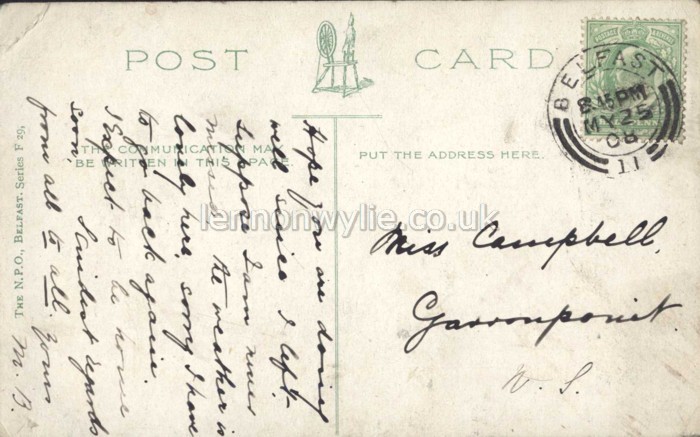 POST CARD
THE COMMUNICATION MAY
BE WRITTEN IN THIS SPACE.
PUT THE ADDRESS HERE.
BELFAST
8.15 PM
MY 25
08
11
THE N.P.O., BELFAST. Series F 29,
Hope you are doing
well since I left.
Suppose I am never
missed the weather is
lovely here, sorry I have
to go back again.
I Expect to be home
soon,
Kindest regards
from all to all. Yours
M. B.
Miss Campbell,
Garronpoint.
lennonwylie.co.uk